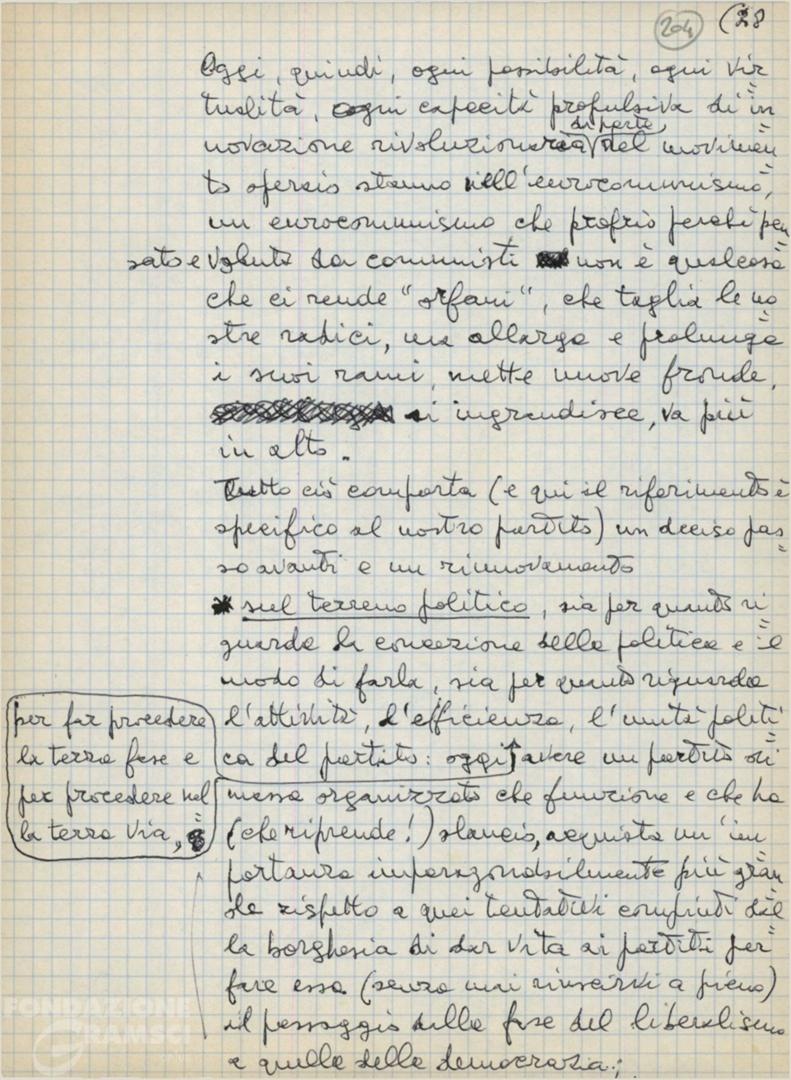 204 (28
Oggi, quindi, ogni possibilità, ogni vir=
tualità, ogni capacità propulsiva di in=
di parte
novazione rivoluzionaria del movimen=
to operaio stanno nell'eurocomunismo,
un eurocomunismo che proprio perché pen=
sato e voluto da comunisti non è qualcosa
che ci rende "orfani", che taglia le no=
stre radici, ma allarga e prolunga
i suoi rami, mette nuove fronde,
si ingrandisce, va più
in alto.
Tutto ciò comporta (e qui il riferimento è
specifico al nostro partito) un deciso pas=
so avanti e un rinnovamento
sul terreno politico, sia per quanto ri=
guarda la concezione della politica e il
modo di farla, sia per quanto riguarda
l'attività, l'efficienza, l'unità politi=
ca del partito: oggi avere un partito di
massa organizzato che funziona e che ha
(che riprende!) slancio, acquista un'im=
portanza imparagonabilmente più gran=
de rispetto a quei tentativi compiuti dal=
la borghesia di dar vita ai partiti per
fare essa (senza mai riuscirvi a pieno)
il passaggio dalla fase del liberalismo
a quella della democrazia;
per far procedere
la terza fase e
per procedere nel=
la terza via,
FONDAZIONE
GRAMSCI